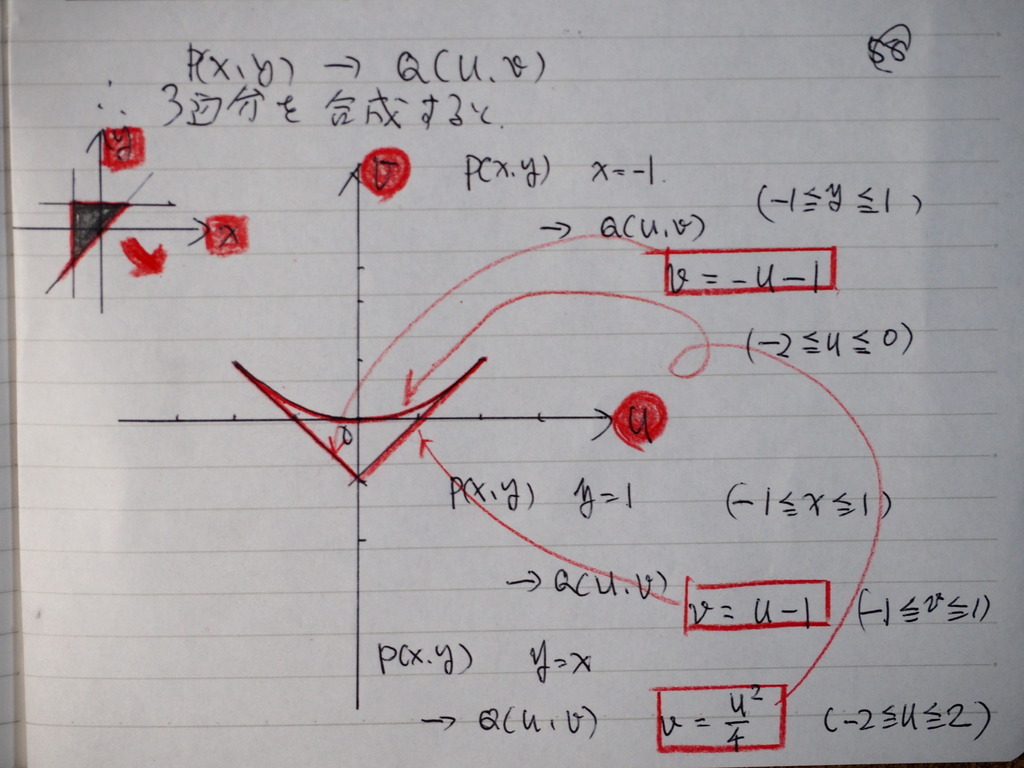 P(x,y) → Q(u,v)
∴ 3辺分を合成すると、
y
x
v
u
0
P(x,y) x=-1.
(-1≦y≦1)
→ Q(u,v)
v=-u-1
(-2≦u≦0)
P(x,y) y=1 (-1≦x≦1)
→ Q(u,v) v=u-1 (-1≦v≦1)
P(x,y) y=x
→ Q(u,v) v=u²/4 (-2≦u≦2)